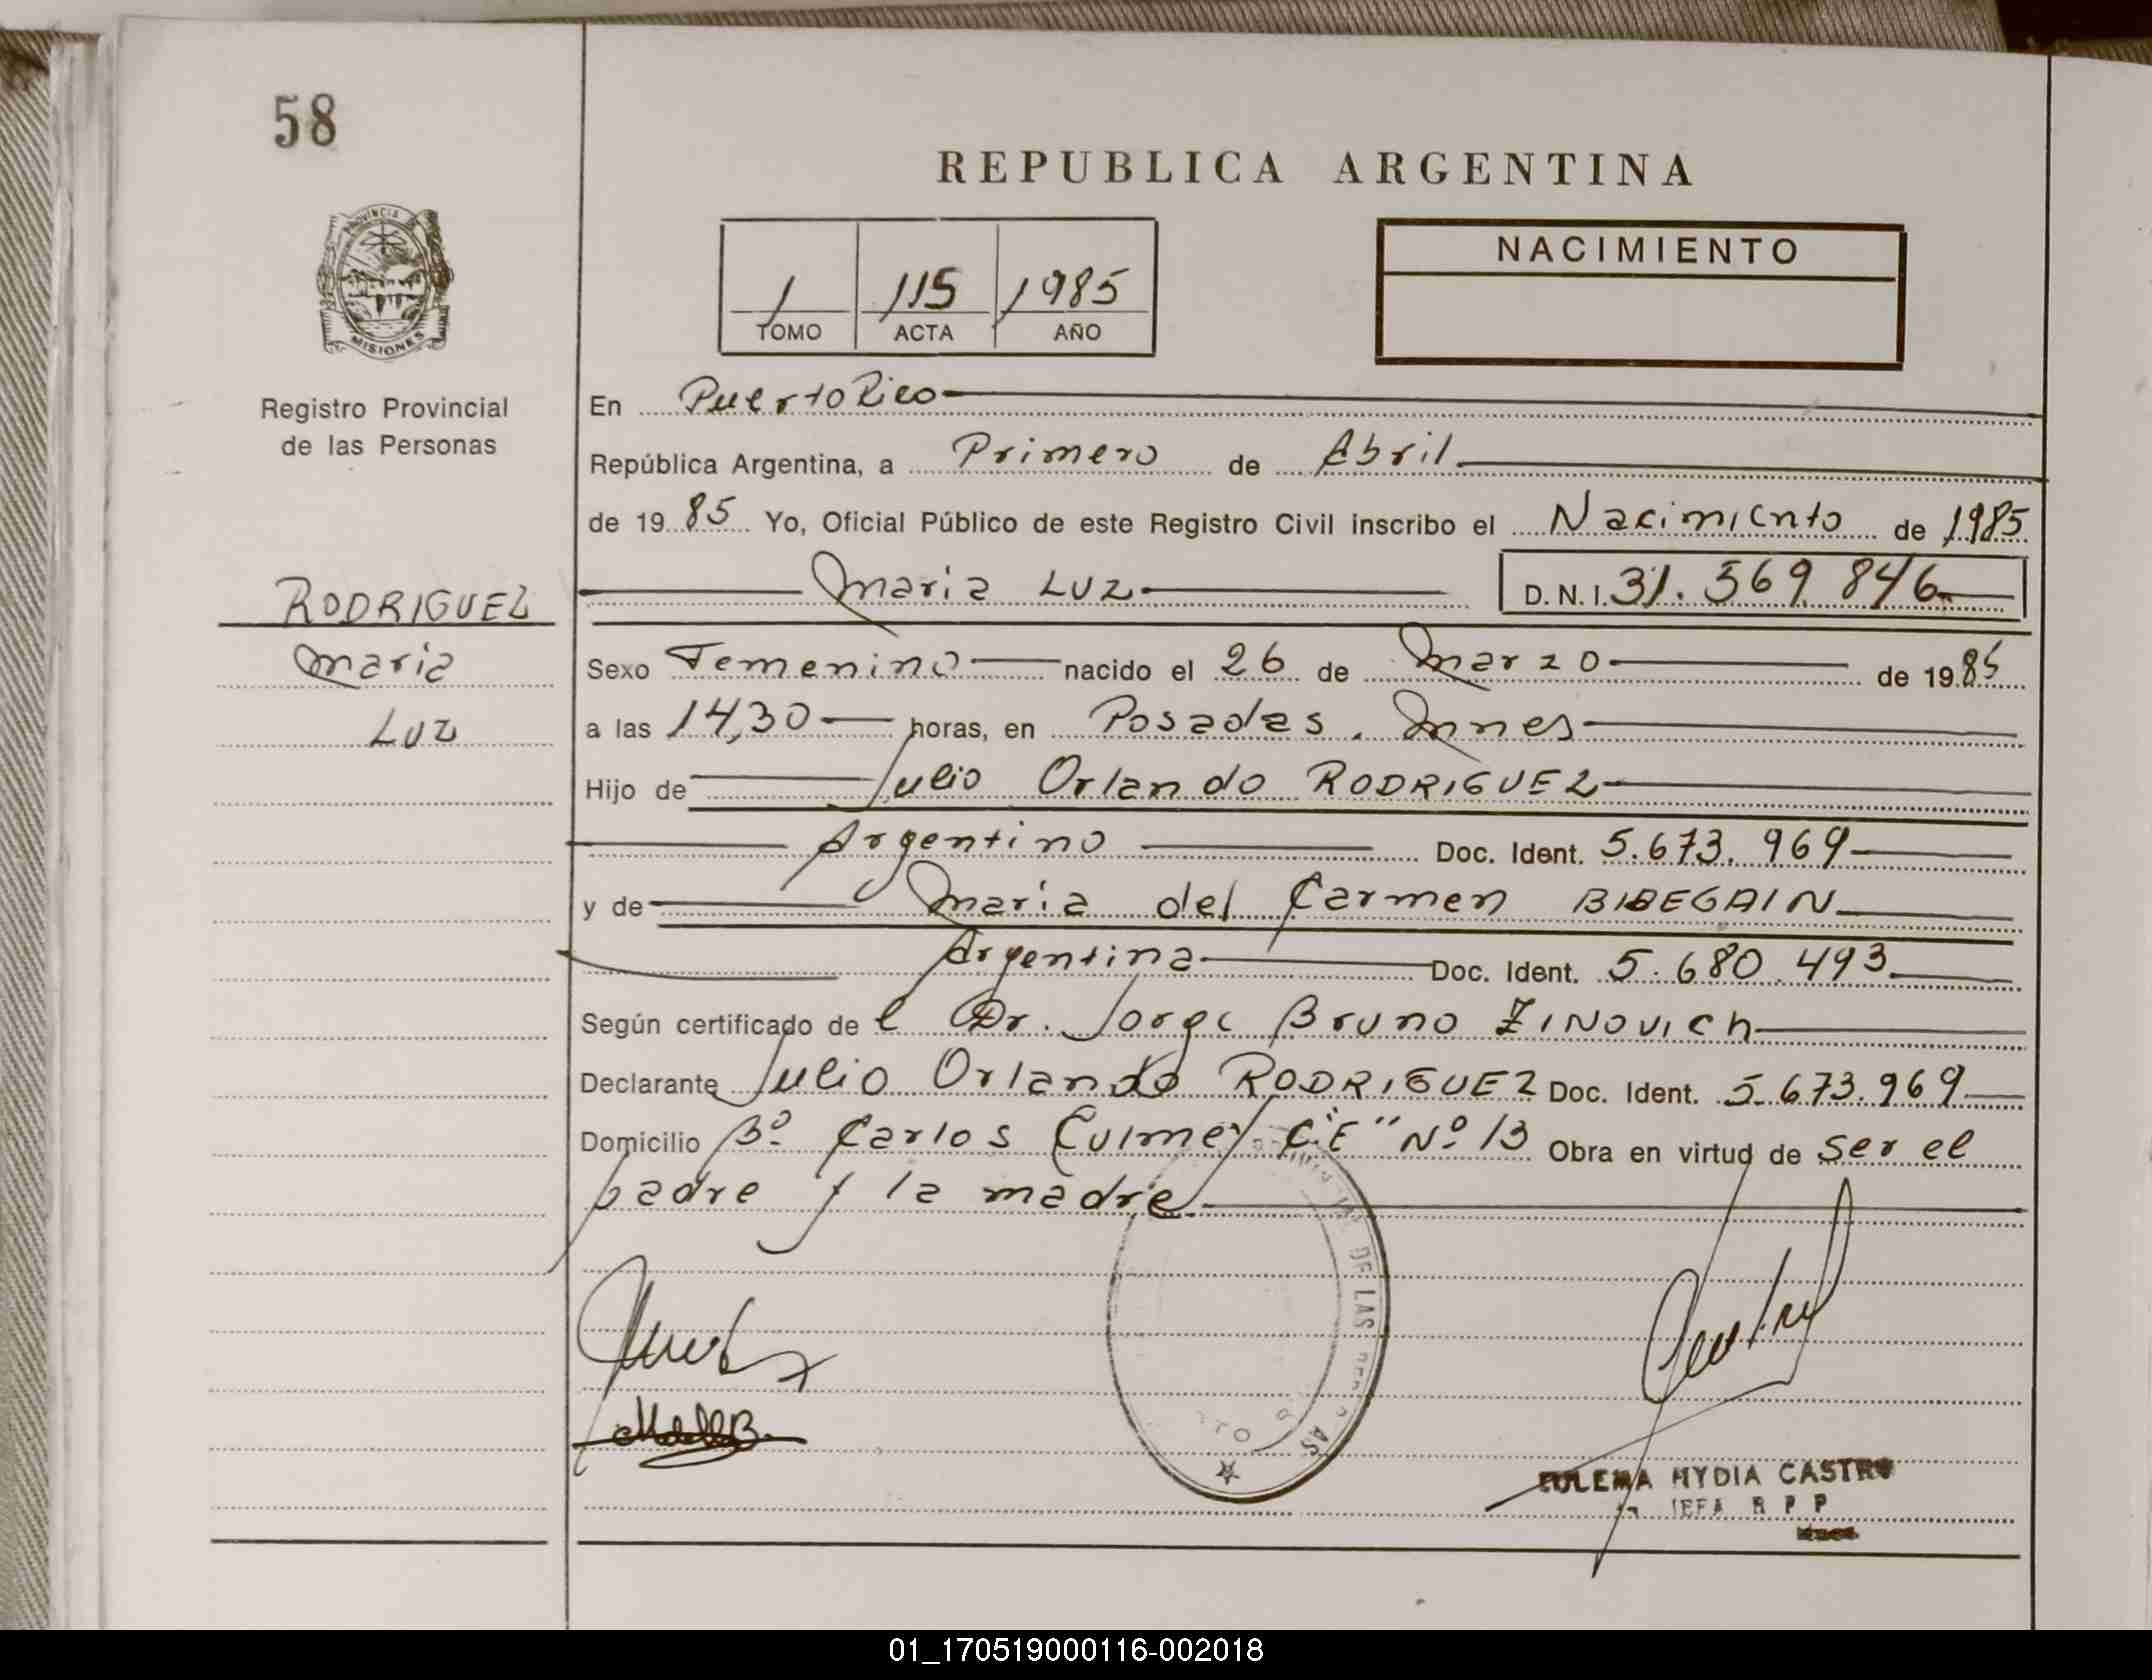 58
REPUBLICA ARGENTINA
PROVINCIA DE
MISIONES
1 115 1985
TOMO ACTA AÑO
NACIMIENTO
Registro Provincial
de las Personas
RODRIGUEZ
Maria
Luz
En Puerto Rico
República Argentina, a Primero de Abril
de 1985 Yo, Oficial Público de este Registro Civil inscribo el Nacimiento de 1985
Maria Luz D.N.I. 31.569.846
Sexo Femenino nacido el 26 de Marzo de 1985
a las 14,30 horas, en Posadas. Mnes
Hijo de Julio Orlando RODRIGUEZ
Argentino Doc. Ident. 5.673.969
y de María del Carmen BIBEGAIN
Argentina Doc. Ident. 5.680.493
Según certificado de l Dr. Jorge Bruno ZINOVICH
Declarante Julio Orlando RODRIGUEZ Doc. Ident. 5.673.969
Domicilio Bº Carlos Culmey C"E" Nº 13 Obra en virtud de ser el
padre y la madre
DE LAS
MYDIA CASTRO
JEFA R P P
01_170519000116-002018